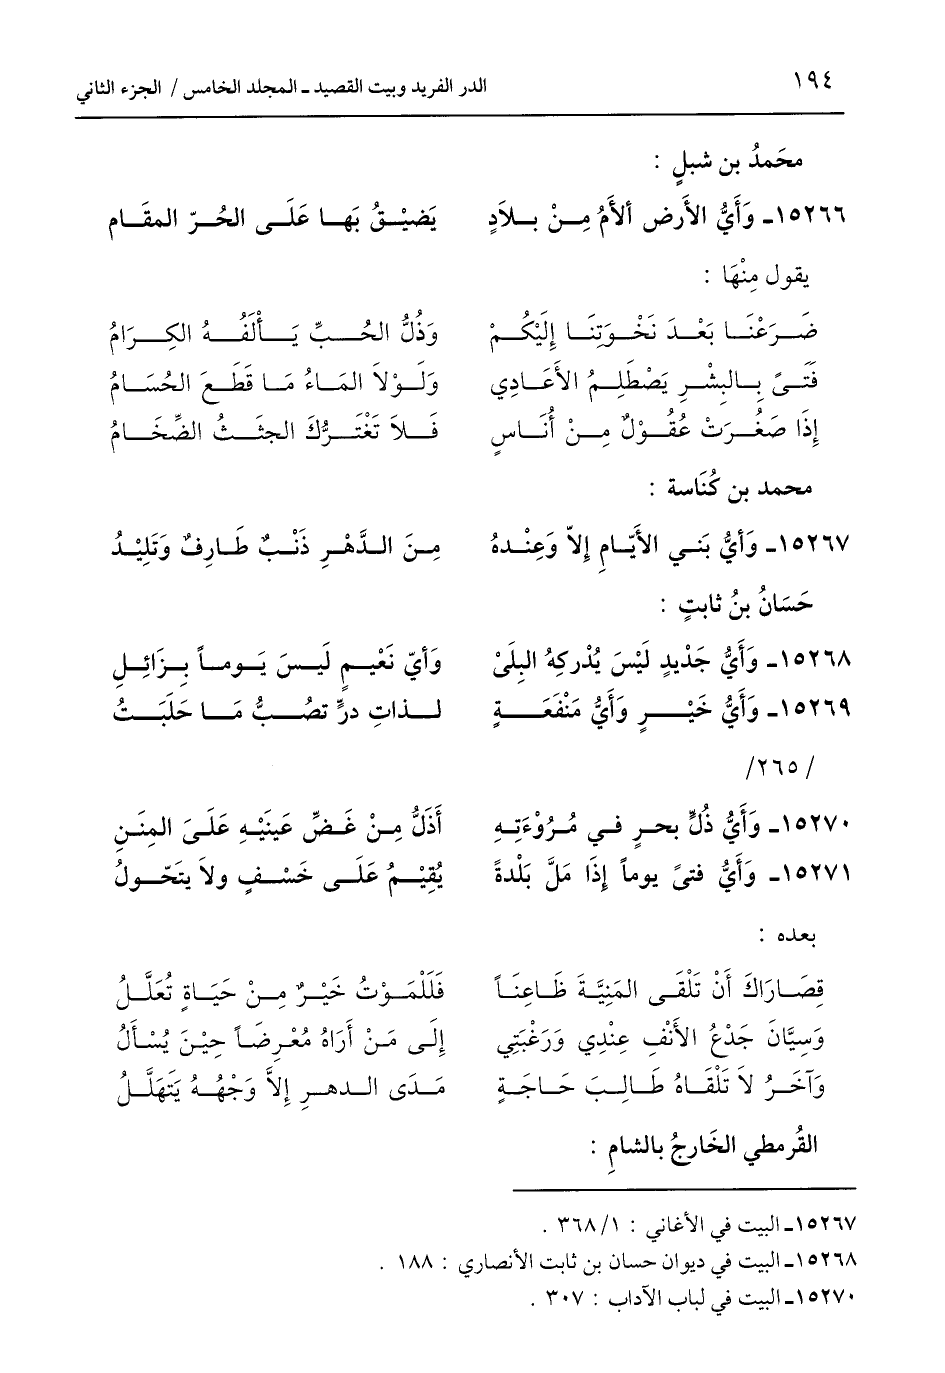 ١٩٤ الدر الفريد وبيت القصيد ـ المجلد الخامس / الجزء الثاني
محَمدُ بن شبلٍ :
١٥٢٦٦ـ وَأَيُّ الأَرضِ ألأَمُ مِـنْ بـلاَدٍ يَضيْـقُ بَهـا عَلَـى الحُـرّ المقَـام
يقول مِنْهَا :
ضَـرَعْنَـا بَعْـدَ نَخْـوَتِنَـا إِلَيْكُـمْ وَذُلُّ الحُـبِّ يَـأْلَفُـهُ الكِـرَامُ
فَتَـىً بِـالبِشْـرِ يَصْطَلِـمُ الأَعَـادِي وَلَـوْلاَ المَـاءُ مَـا قَطَـعَ الحُسَـامُ
إِذَا صَغُـرَتْ عُقُـوْلٌ مِـنْ أُنَـاسٍ فَـلاَ تَغْتَـرُّكَ الجثَـثُ الضِّخَـامُ
محمد بن كُنَاسة :
١٥٢٦٧ـ وَأيُّ بَنـي الأَيّـامِ إلاّ وَعِنْـدهُ مِـنَ الـدَّهْـرِ ذَنْـبٌ طَـارِفٌ وَتَلِيْـدُ
حَسَانُ بنُ ثابتٍ :
١٥٢٦٨ـ وَأَيُّ جَدْيدٍ لَيْسَ يُدْركِهُ البلَىْ وَأيّ نَعْيـمٍ لَيـسَ يَـومـاً بـزَائِـلِ
١٥٢٦٩ـ وَأَيُّ خَيْـرٍ وَأَيُّ مَنْفَعَـةٍ لـذاتِ درٍّ تصُـبُّ مَـا حَلَبَـتُ
/ ٢٦٥/
١٥٢٧٠ـ وَأَيُّ ذُلٍّ بحـرٍ فـي مُـرُوْءَتـهِ أَذَلُّ مِـنْ غَـضِّ عَينَيْـهِ عَلَـىَ المِنَـنِ
١٥٢٧١ـ وَأَيُّ فتىً يوماً إذَا مَلَّ بَلْدةً يُقِيْـمُ عَلَـى خَسْـفٍ ولاَ يتَحّـولُ
بعده :
قِصَـارَاكَ أَنْ تَلْقَـى المَنِيَّـةَ ظَـاعِنَـاً فَلَلْمَـوْتُ خَيْـرٌ مِـنْ حَيَـاةٍ تُعَلَّـلُ
وَسِيَّانَ جَدْعُ الأَنْفِ عِنْدِي وَرَغْبَتِي إِلَـى مَـنْ أَرَاهُ مُعْـرِضَـاً حِيْـنَ يُسْـأَلُ
وَآخَـرُ لاَ تَلْقَـاهُ طَـالِـبَ حَـاجَـةٍ مَـدَى الـدهـرِ إلاَّ وَجْهُـهُ يَتَهلَّـلُ
القُرمطي الخَارجُ بالشامِ :
١٥٢٦٧ـ البيت في الأغاني : ١/ ٣٦٨ .
١٥٢٦٨ـ البيت في ديوان حسان بن ثابت الأنصاري : ١٨٨ .
١٥٢٧٠ـ البيت في لباب الآداب : ٣٠٧ .